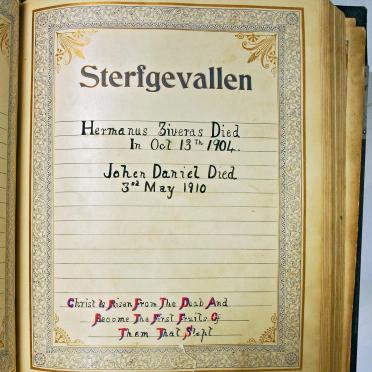 Sterfgevallen
Hermanus Ziveras Died
In Oct 13Th 1904.
Johen Daniel Died
3rd May 1910
Christ is Risen From The Deab And
Become The First Fruits Of
Them That Slept